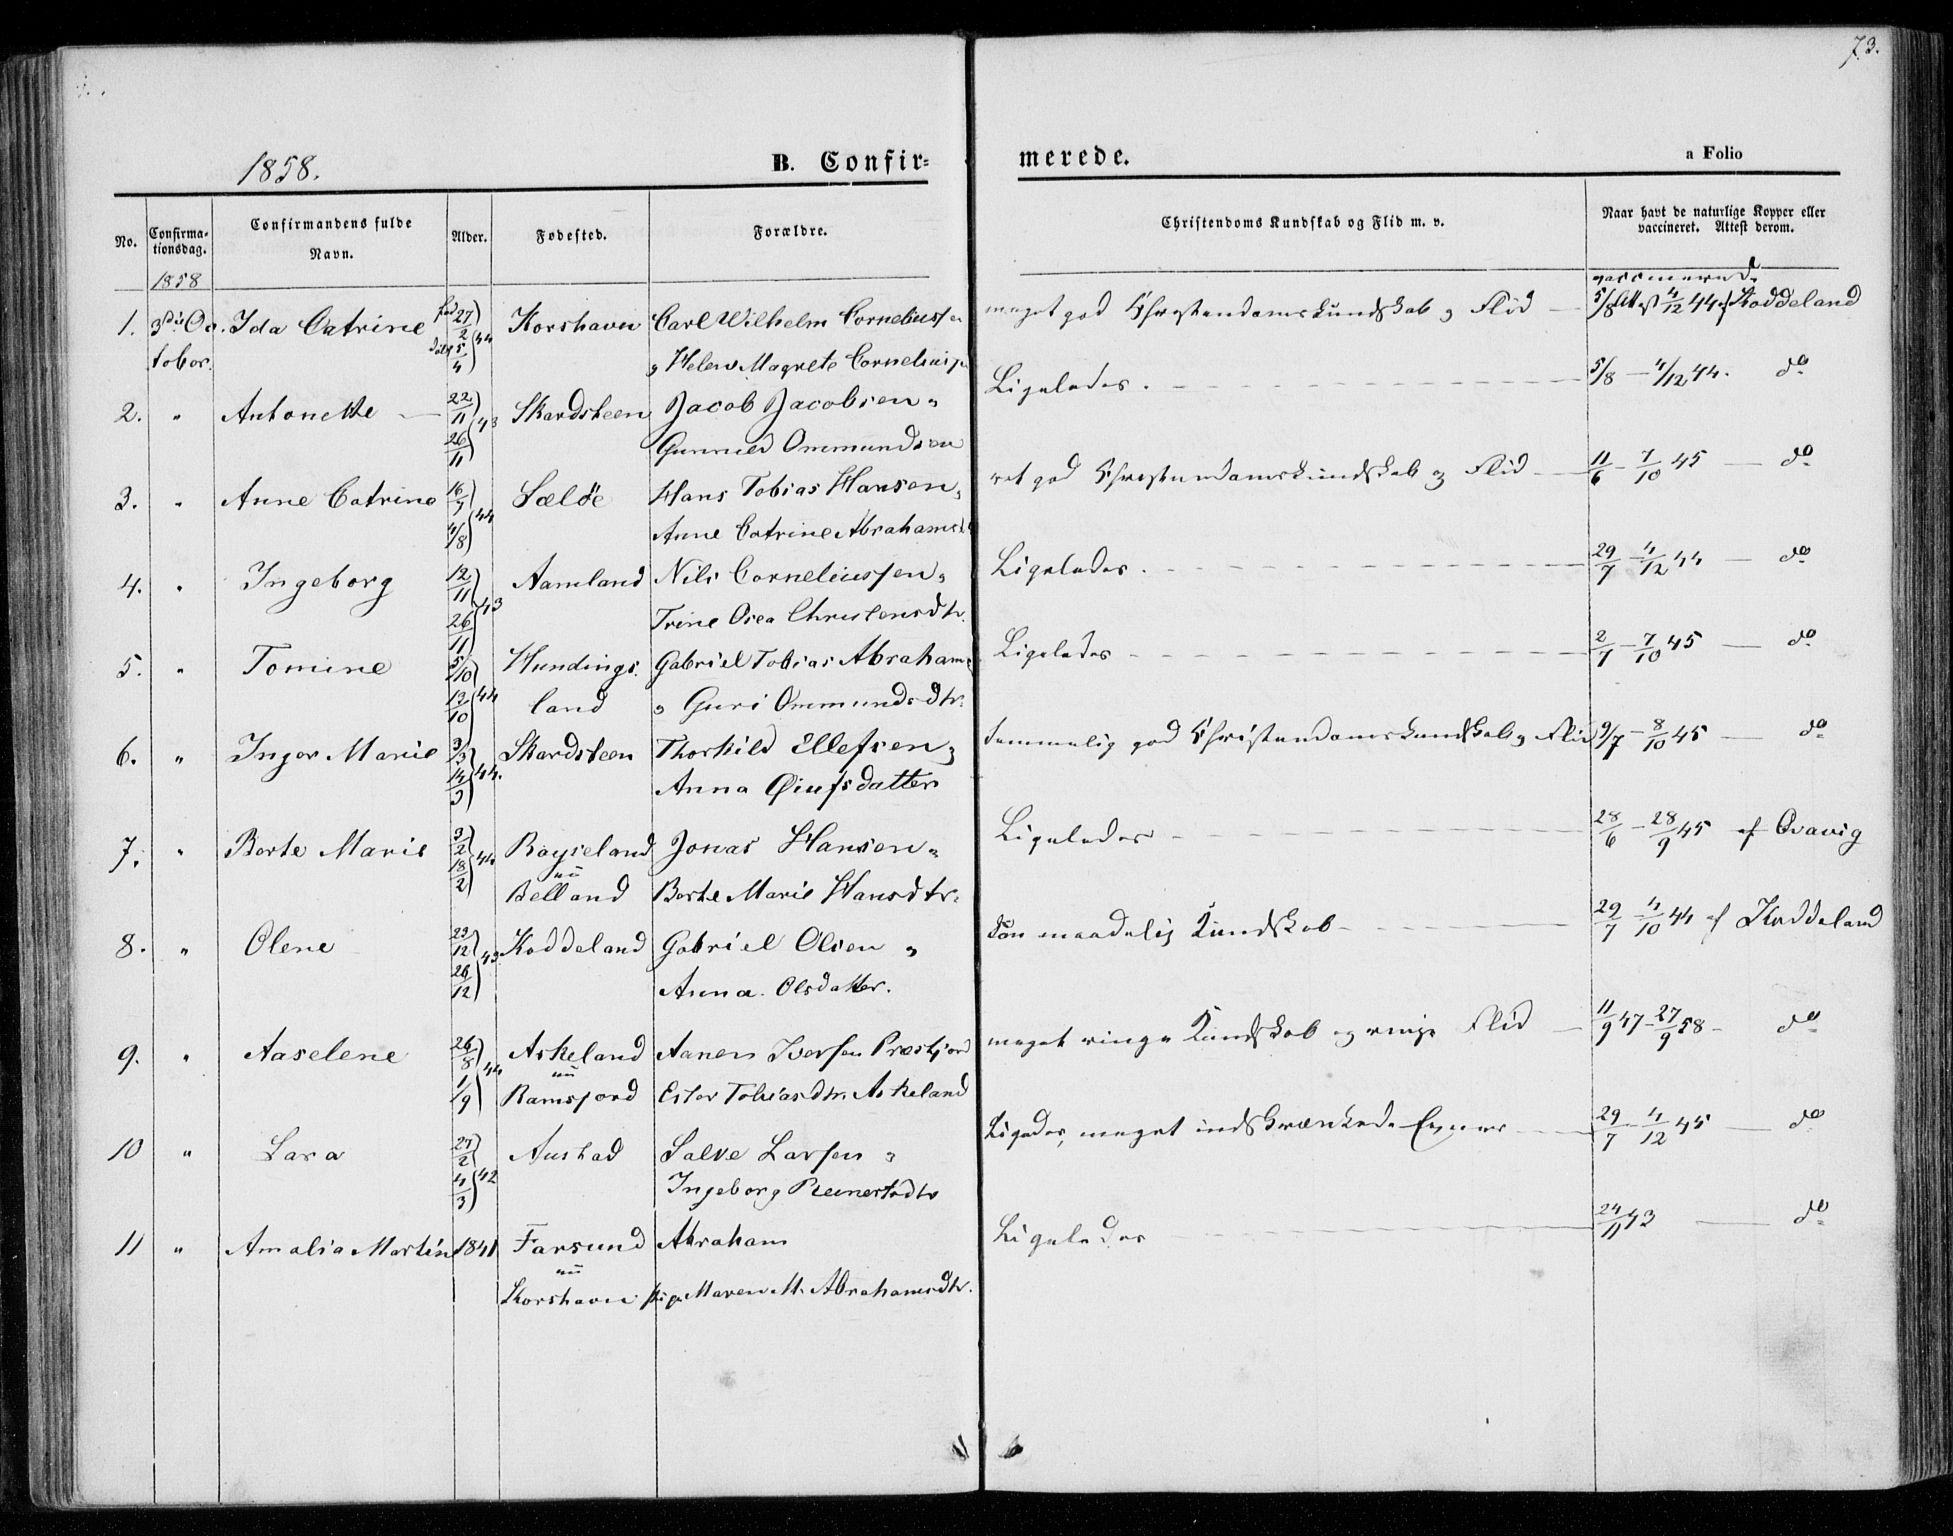 73.
1858. B. Confir=
merede. a Folio
No. Confirma-
tionsdag. Confirmandens fulde
Navn. Alder. Fødested. Forældre. Christendoms Kundskab og Flid m. v. Naar havt de naturlige Kopper eller
vaccineret. Attest derom.
1858 vaccinered
1. 3die Oc- Ida Catrine fød 27/2 44 Korshavn Carl Wilhelm Corneliussen meget god Christendomskundskab og Flid — 5/8 Attest 4/12 44 af Koddeland
tober. døbt 5/4 og Helene Magrete Corneliusd
2. " Antonette — 22/11 43 Skardsteen Jacob Jacobsen " Ligeledes. 5/8 — 4/12 44. do
26/11 Gunnild Ommundsen
3. " Anne Catrine 16/7 44 Sæløe Hans Tobias Hansen " ret god Christendomskundskab og Flid — 11/6 - 7/10 45 — do
4/8 Anne Catrine Abrahamsd
4. " Ingeborg 12/11 43 Aamland Nils Corneliussen " Ligeledes. 29/7 - 4/12 44 — do
26/11 Trine Osea Christensdtr.
5. " Tomine 5/10 44 Hundings- Gabriel Tobias Abrahams Ligeledes 2/7 - 7/10 45 — do
13/10 land og Guri Ommundsdtr.
6. " Inger Marie 3/3 44. Skardsteen Thorkild Ellefsen og temmelig god Christendomskundskab og Flid 9/7 - 8/10 45 — do
14/3 Anna Øiufsdatter
7. " Berte Marie 3/2 44 Røyseland Jonas Hansen " Ligeledes 28/6 - 28/9 45 af Qvavig
18/2 nu
Belland Berte Marie Hansdtr.
8. " Olene 23/12 43. Koddeland Gabriel Olsen " Son maadelig Kundskab 29/7 4/10 44 af Koddeland
26/12 Anna Olsdatter.
9. " Aaselene 26/8 44 Askeland Aanen Iversen Prestjord meget ringe Kundskab og ringe Flid — 11/9 47 - 27/9 58 - do
1/9 nu
Ramsjord Ester Tobiasdtr. Askeland
10 " Lara 27/2 42 Austad Salve Larsen " Ligedes, meget indskrænkede Evner 29/7 - 4/12 45 — do
4/3 Ingeborg Reinertsdtr
11 " Amalia Martin 1841 Farsund Abraham Ligeledes 24/11 43 — do
nu
Korshavn pige Maren M. Abrahamsdtr.